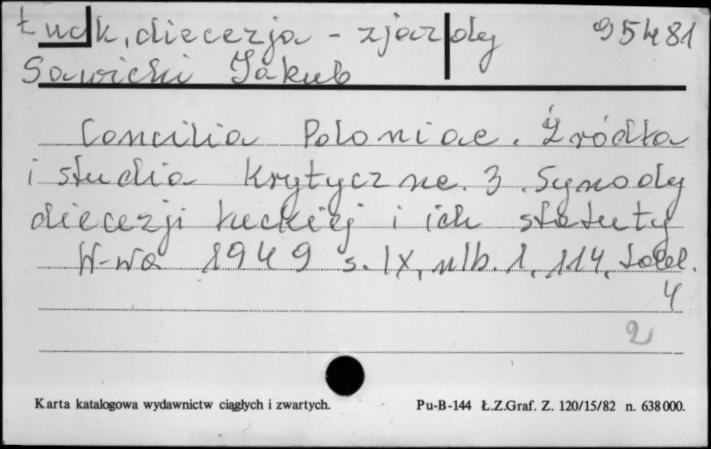 Łuck, diecezja - zjazdy 95481
Sawicki Jakub
Concilia Poloniae. Źródła
i studia krytyczne. 3. Synody
diecezji łuckiej i ich statuty
W-wa 1949 s. IX, nlb. 1, 114, tabl.
4
2
Karta katalogowa wydawnictw ciągłych i zwartych. Pu-B-144 Ł.Z.Graf. Z. 120/15/82 n. 638000.